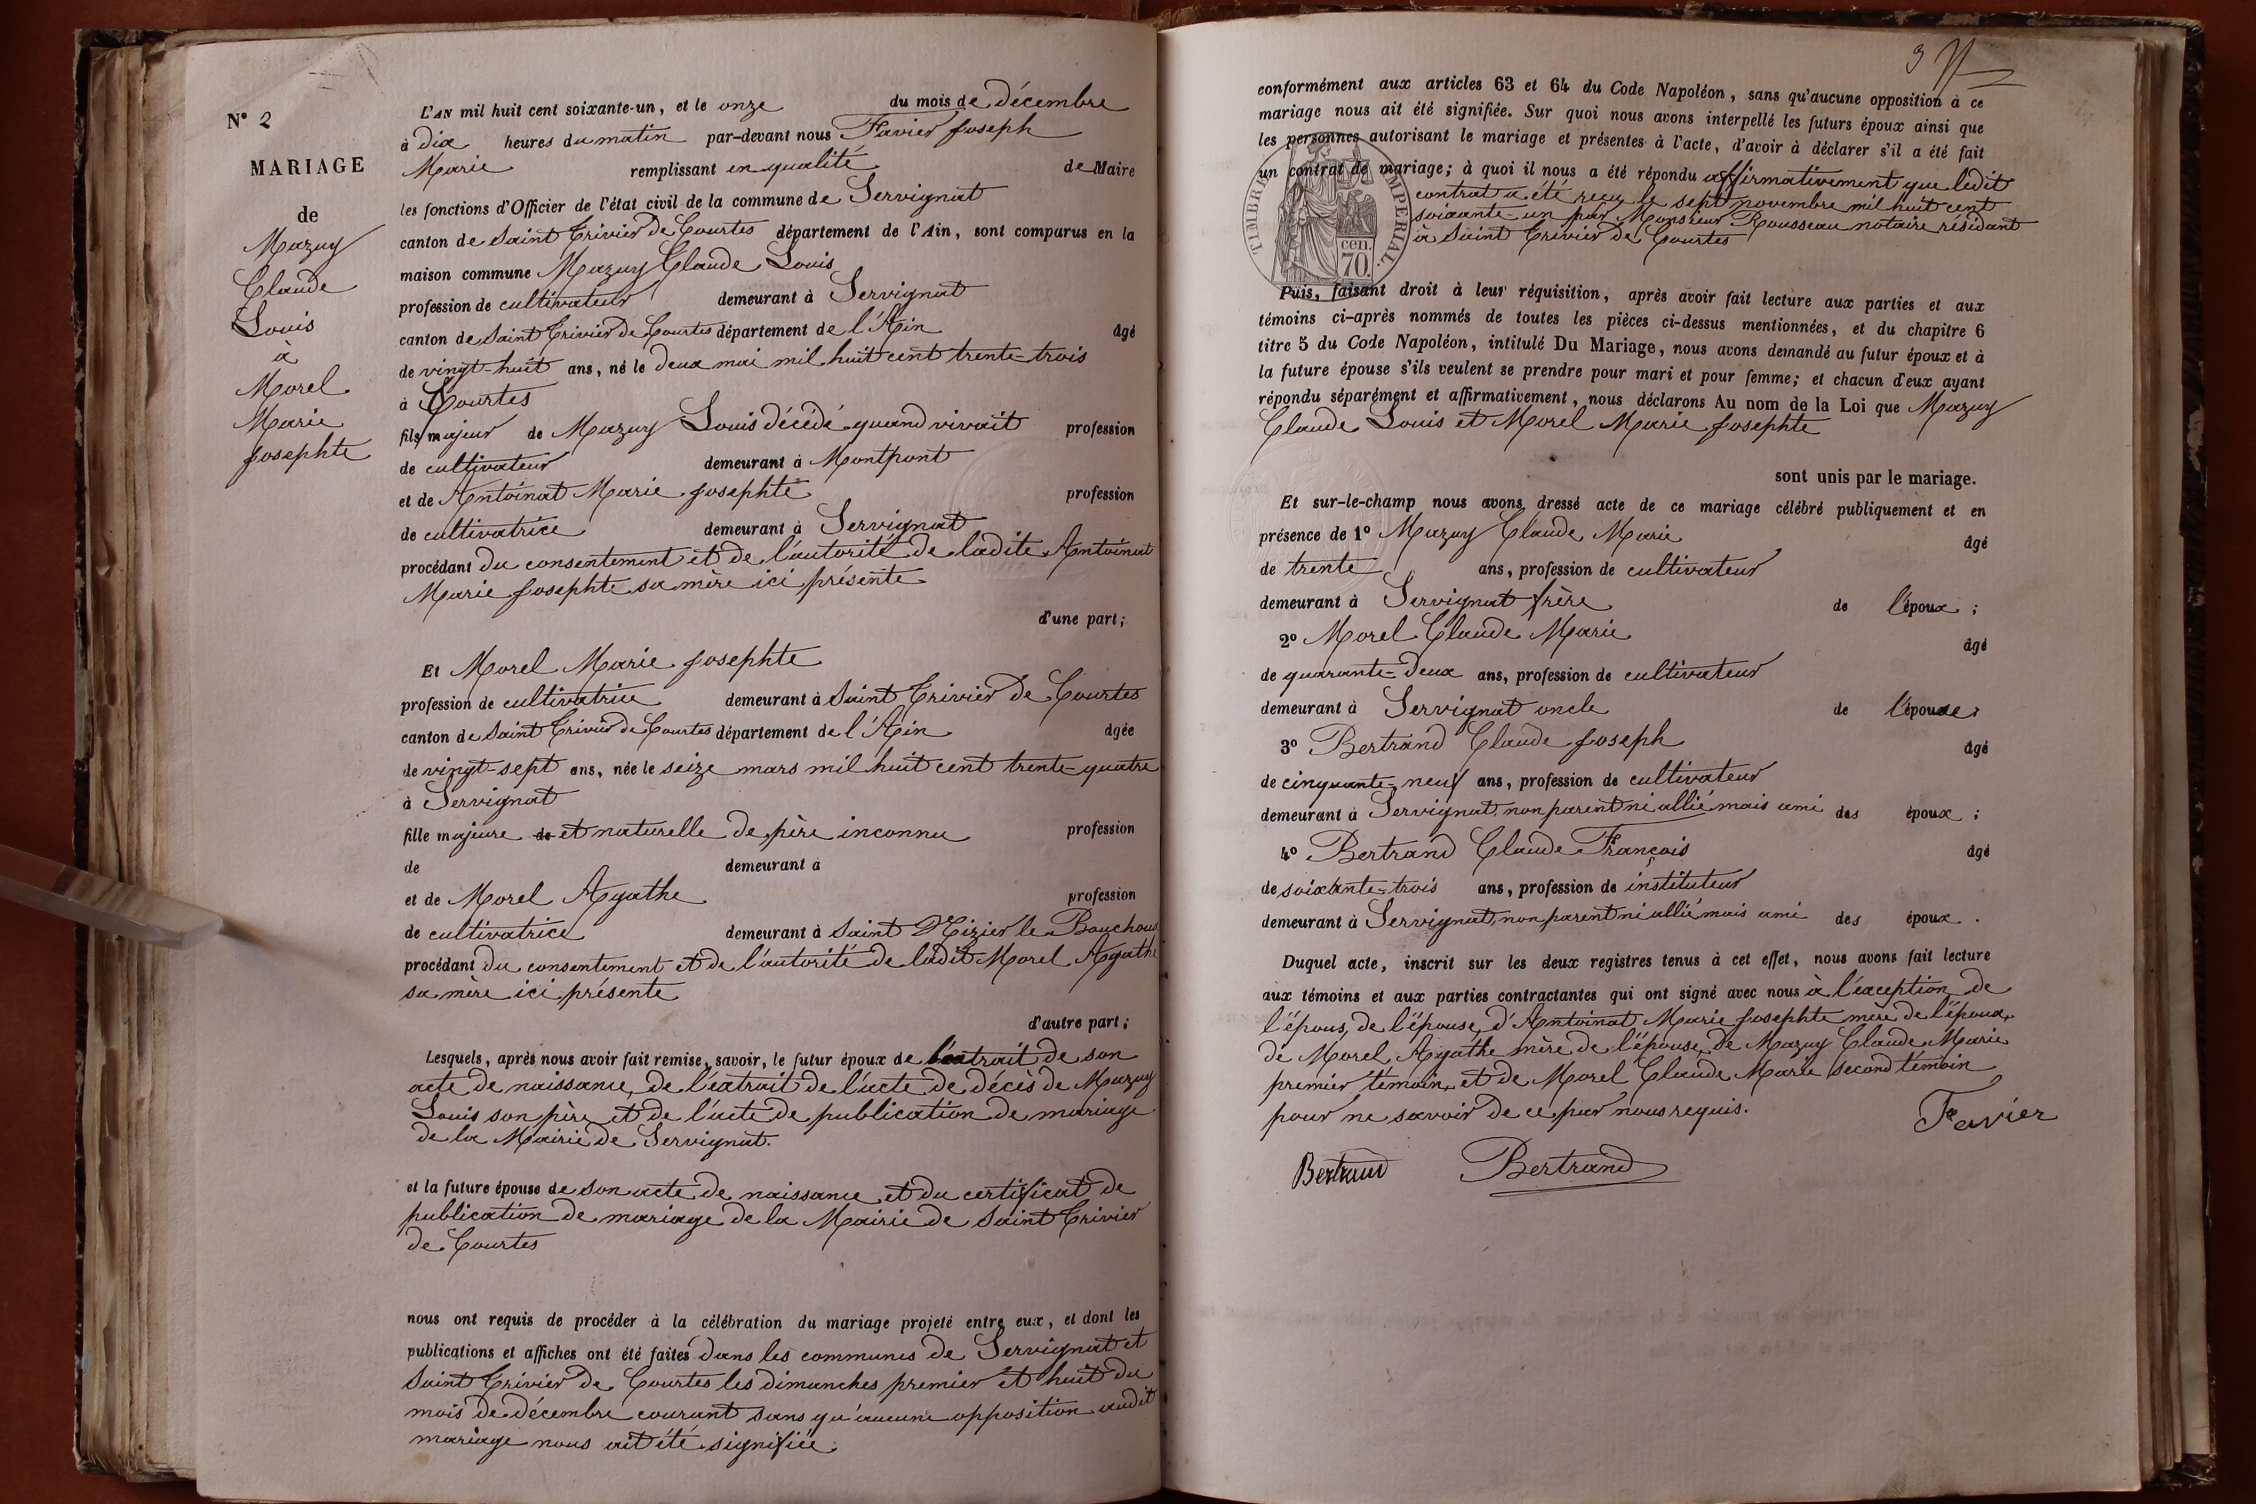 N° 2
MARIAGE
de
Mazuy
Claude
Louis
à
Morel
Marie
Josephte
L'AN mil huit cent soixante-un, et le onze du mois de décembre
à dix heures du matin par-devant nous Favier Joseph
Marie remplissant en qualité de Maire
les fonctions d'Officier de l'état civil de la commune de Servignat
canton de Saint Trivier de Courtes département de l'Ain, sont comparus en la
maison commune Mazuy Claude Louis
profession de cultivateur demeurant à Servignat
canton de Saint Trivier de Courtes département de l'Ain âgé
de vingt-huit ans, né le deux mai mil huit cent trente-trois
à Courtes
fils majeur de Mazuy Louis décédé quand vivait profession
de cultivateur demeurant à Montpont
et de Antoinat Marie Josephte profession
de cultivatrice demeurant à Servignat
procédant du consentement et de l'autorité de ladite Antoinat
Marie Josephte sa mère ici présente
d'une part;
Et Morel Marie Josephte
profession de cultivatrice demeurant à Saint Trivier de Courtes
canton de Saint Trivier de Courtes département de l'Ain âgée
de vingt-sept ans, née le seize mars mil huit cent trente-quatre
à Servignat
fille majeure de et naturelle de père inconnu profession
de demeurant à
et de Morel Agathe profession
de cultivatrice demeurant à Saint Nizier le Bouchoux
procédant du consentement et de l'autorité de ladit Morel Agathe
sa mère ici présente
d'autre part;
Lesquels, après nous avoir fait remise, savoir, le futur époux de l'extrait de son
acte de naissance, de l'extrait de l'acte de décès de Mazuy
Louis son père et de l'acte de publication de mariage
de la Mairie de Servignat.
et la future épouse de son acte de naissance et du certificat de
publication de mariage de la Mairie de Saint Trivier
de Courtes
nous ont requis de procéder à la célébration du mariage projeté entre eux, et dont les
publications et affiches ont été faites dans les communes de Servignat et
Saint Trivier de Courtes les dimanches premier et huit du
mois de décembre courant sans qu'aucune opposition audit
mariage nous ait été signifiée.
conformément aux articles 63 et 64 du Code Napoléon, sans qu'aucune opposition à ce
mariage nous ait été signifiée. Sur quoi nous avons interpellé les futurs époux ainsi que
les personnes autorisant le mariage et présentes à l'acte, d'avoir à déclarer s'il a été fait
un contrat de mariage; à quoi il nous a été répondu affirmativement que ledit
contrat a été reçu le sept novembre mil huit cent
soixante-un par Monsieur Rousseau notaire résidant
à Saint Trivier de Courtes
TIMBRE IMPERIAL.
cen.
70.
Puis, faisant droit à leur réquisition, après avoir fait lecture aux parties et aux
témoins ci-après nommés de toutes les pièces ci-dessus mentionnées, et du chapitre 6
titre 5 du Code Napoléon, intitulé Du Mariage, nous avons demandé au futur époux et à
la future épouse s'ils veulent se prendre pour mari et pour femme; et chacun d'eux ayant
répondu séparément et affirmativement, nous déclarons Au nom de la Loi que Mazuy
Claude Louis et Morel Marie Josephte
sont unis par le mariage.
Et sur-le-champ nous avons dressé acte de ce mariage célébré publiquement et en
présence de 1° Mazuy Claude Marie âgé
de trente ans, profession de cultivateur
demeurant à Servignat frère de l'époux;
2° Morel Claude Marie âgé
de quarante-deux ans, profession de cultivateur
demeurant à Servignat oncle de l'épouse;
3° Bertrand Claude Joseph âgé
de cinquante-neuf ans, profession de cultivateur
demeurant à Servignat, non parent ni allié mais ami des époux;
4° Bertrand Claude François âgé
de soixante-trois ans, profession de instituteur
demeurant à Servignat, non parent ni allié mais ami des époux.
Duquel acte, inscrit sur les deux registres tenus à cet effet, nous avons fait lecture
aux témoins et aux parties contractantes qui ont signé avec nous à l'exception de
l'épous, de l'épouse, d'Antoinat Marie Josephte mère de l'époux,
de Morel Agathe mère de l'épouse, de Mazuy Claude Marie
premier témoin, et de Morel Claude Marie second témoin
pour ne savoir de ce par nous requis.
Favier
Bertrand Bertrand